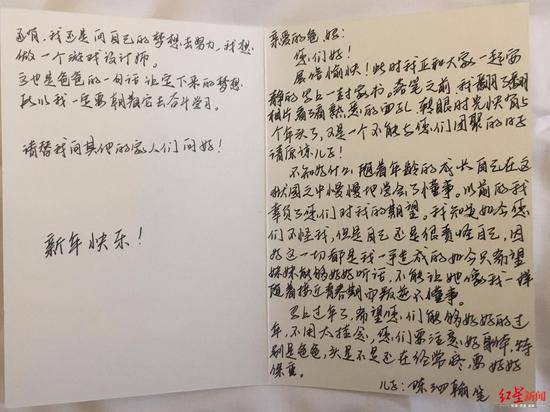 亲爱的爸妈：
您们好！
展信愉快！此时我正和大家一起安
静的写上一封家书。落笔之前我翻了翻
相片看了看熟悉的面孔，转眼时光快有
个年头了，又是一个不能与您们团聚的日子
请原谅儿子！
不知为什么随着年龄的成长自己在这
之中慢慢地学会了懂事。以前的我
辜负了您们对我的期望。我知道如今您
们不怪我，但是自己还是很责怪自己，因
为这一切都是我一手造成的如今只希望
妹妹能够好好听话，不能让她像我一样
随着接近青春期而叛逆不懂事。
马上过年了，希望您们能够好好的过
年，不用太挂念，您们要注意好身体，特
别是爸爸，头是不是还在经常疼，要好好
保重。
儿子：陈泗翰笔
还有，我还是向自己的梦想去努力，我想
做一个游戏设计师。
这也是爸爸的一句话让定下来的梦想
所以我一定要朝着它去奋斗学习。
请替我向其他的家人们问好！
新年快乐！
红星新闻